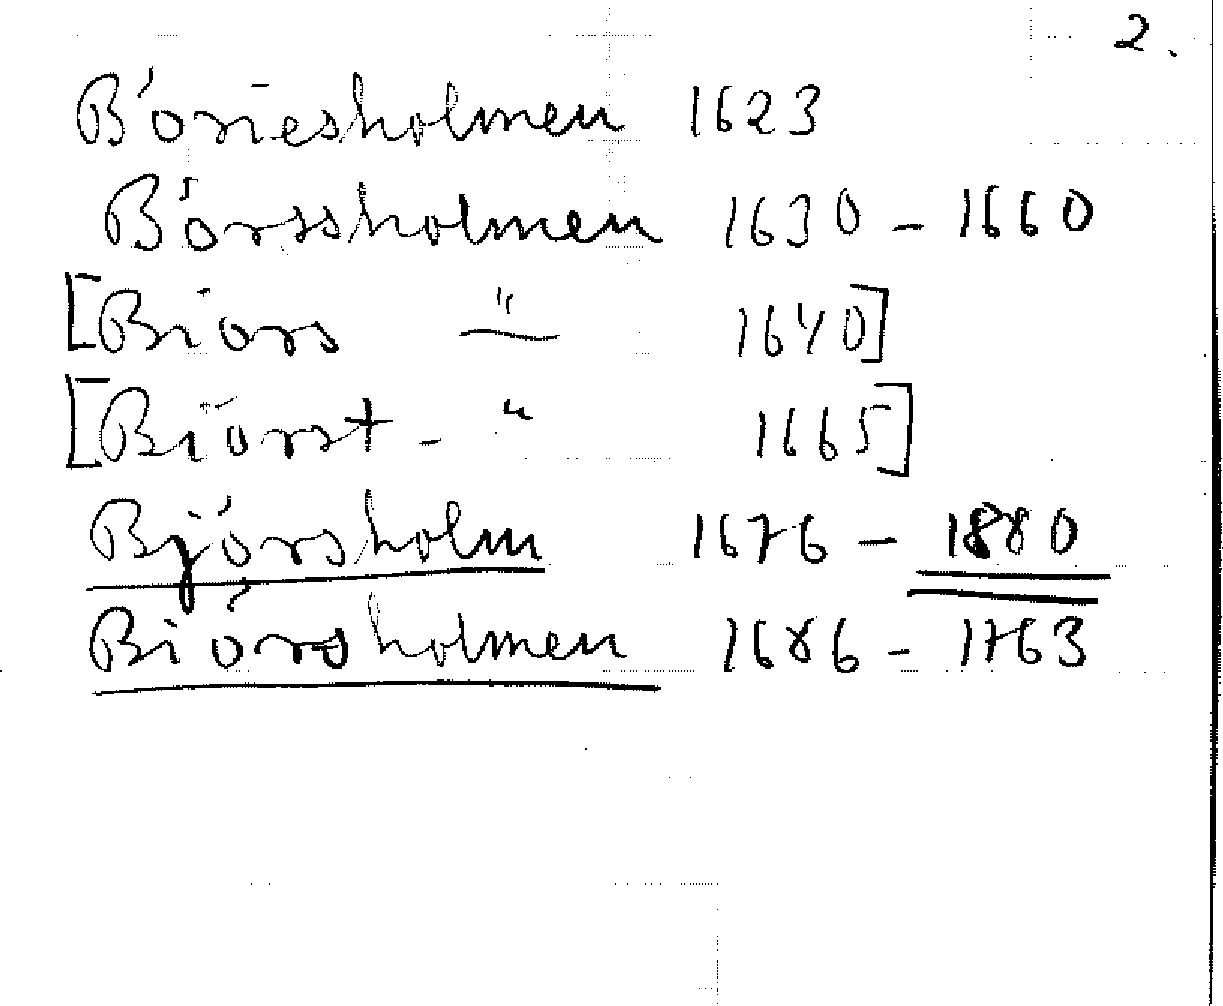 2.
Böriesholmen 1623
Börssholmen 1630 - 1660
[Biörs — " 1640]
[Biörst - " 1665]
Björsholm 1676 - 1880
Biörsholmen 1686 - 1763